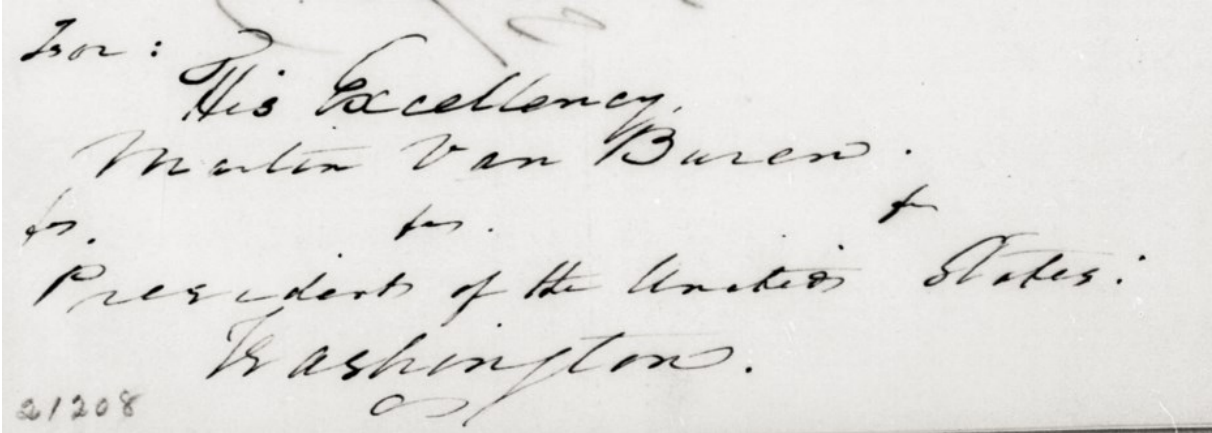 For :
His Excellency,
Martin Van Buren .
President of the United States :
Washington .
21208